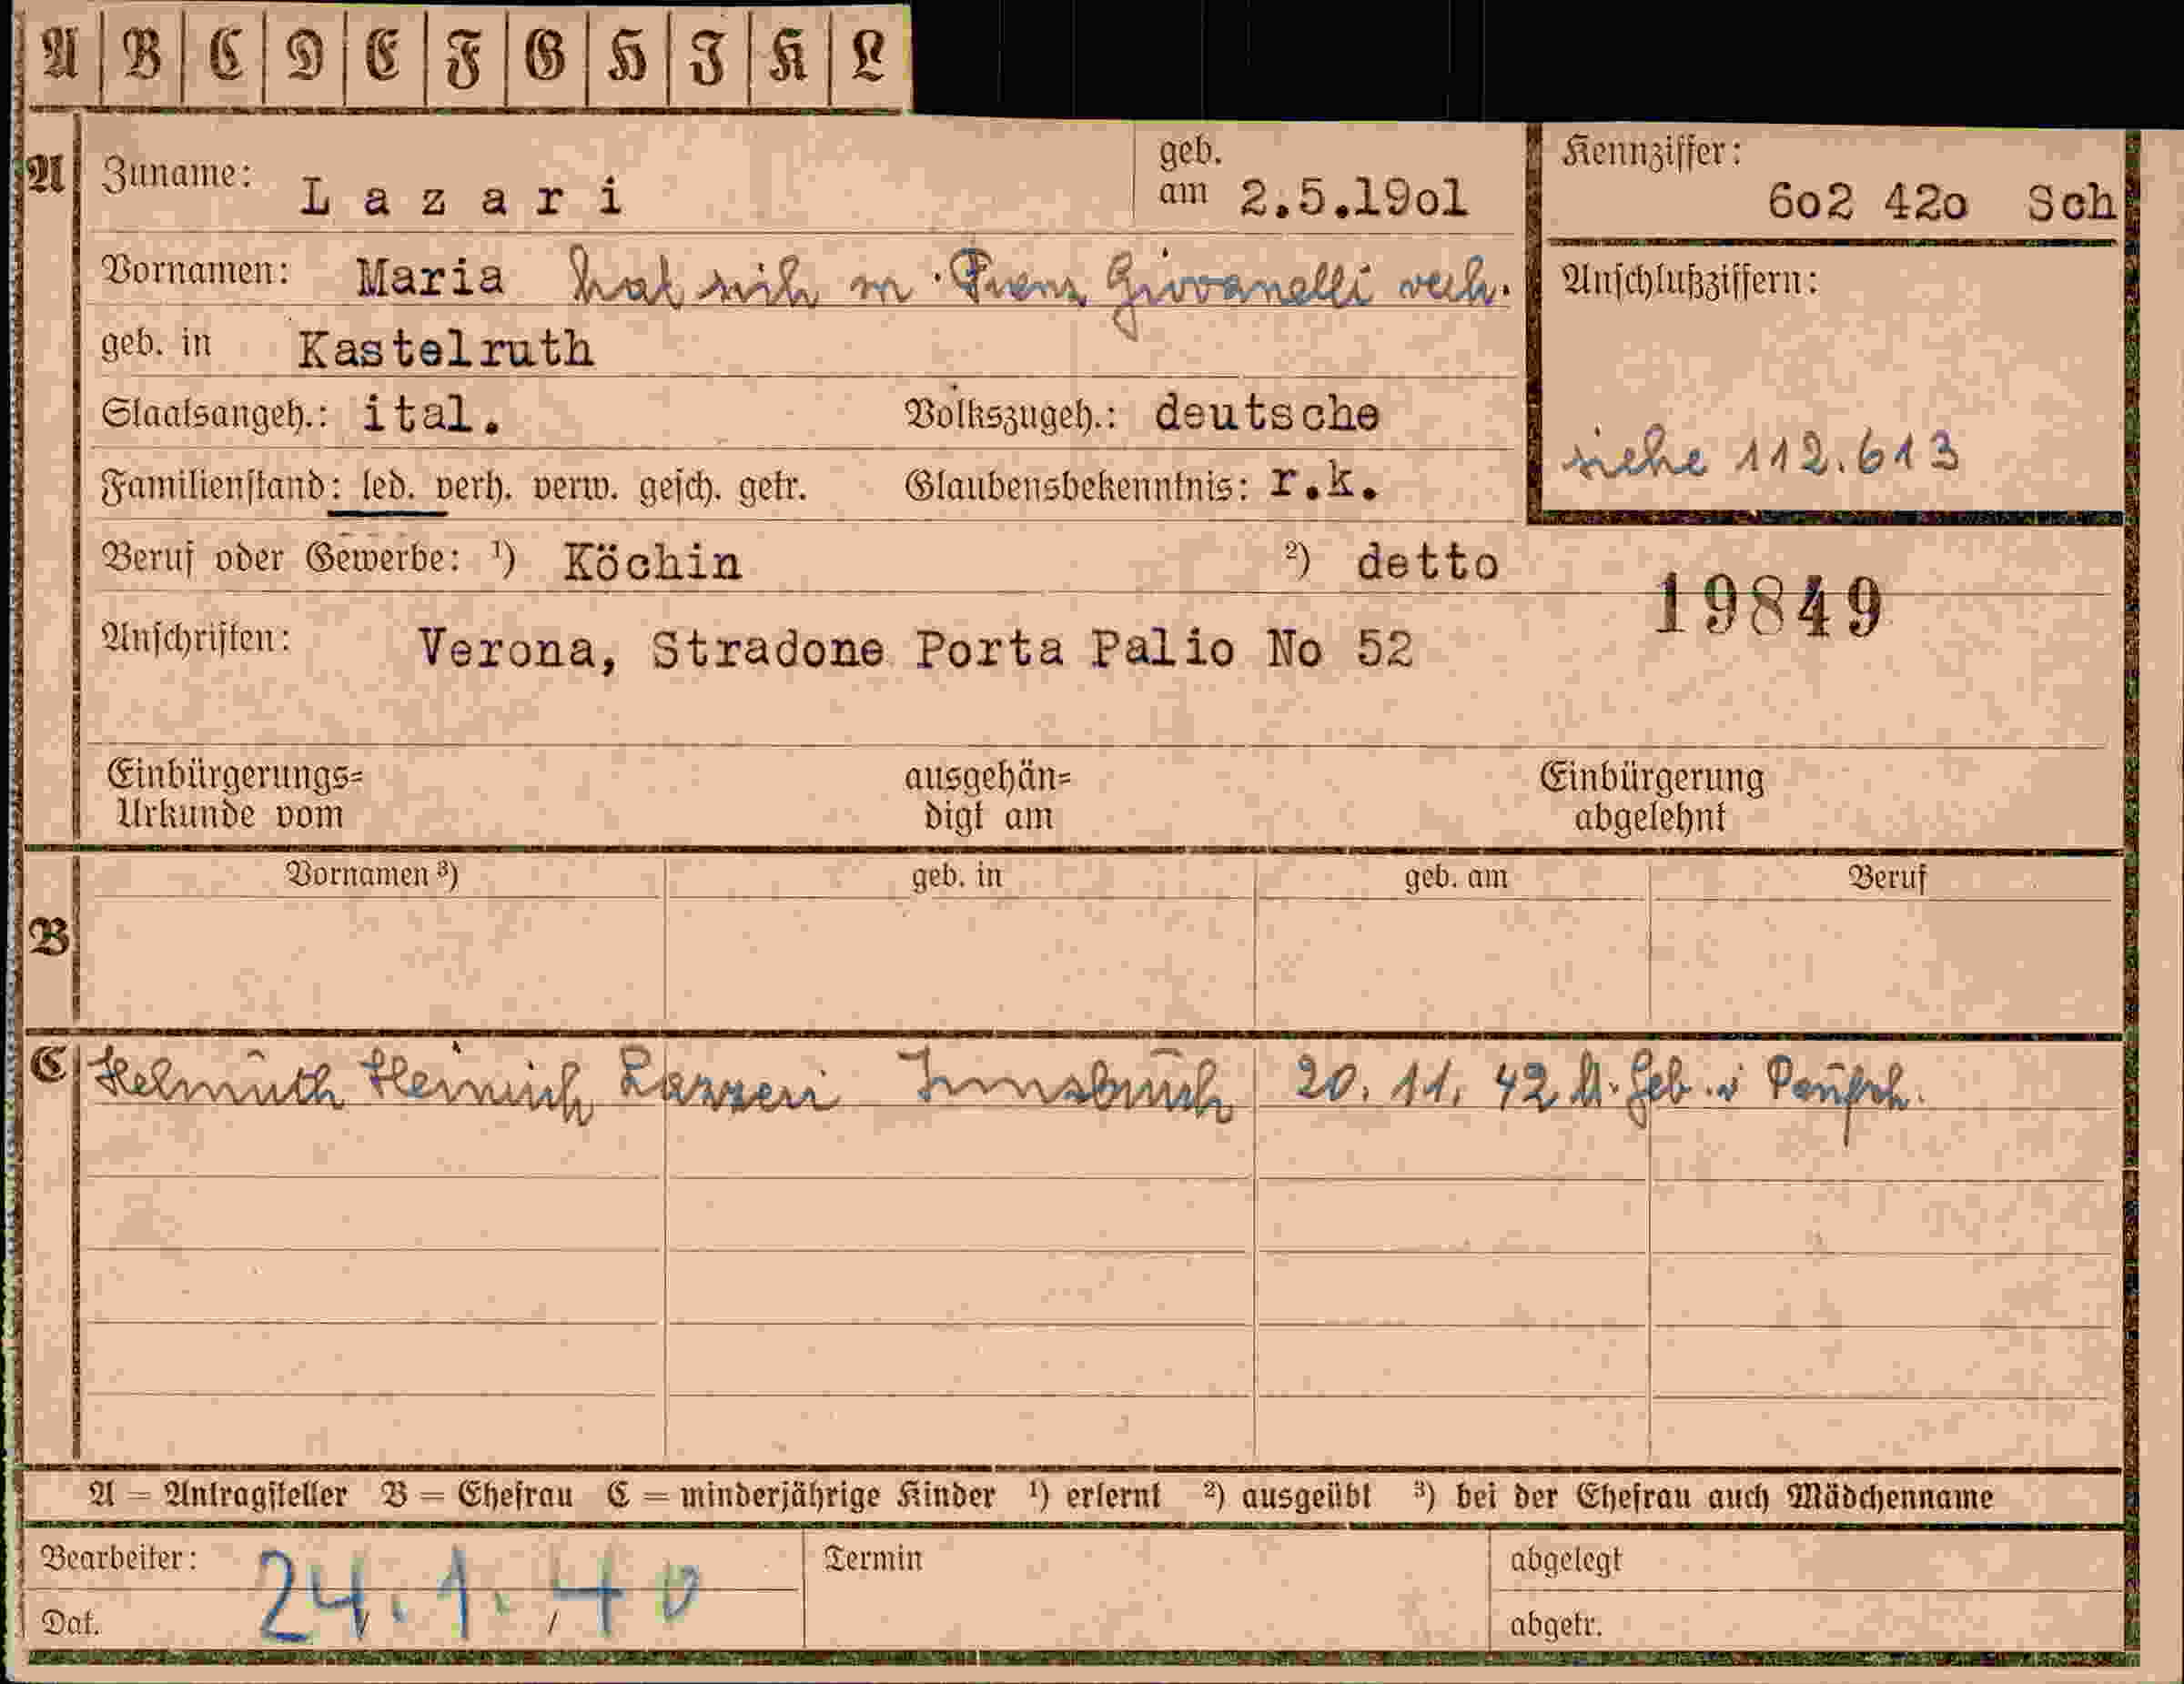 A B C D E F G H J K L
A
Zuname: Lazari
geb. am 2.5.19o1
Kennziffer: 6o2 42o Sch
Vornamen: Maria hat sich m. Franz Giovanelli verh.
Anschlußziffern:
geb. in Kastelruth
Staatsangeh.: ital. Volkszugeh.: deutsche
siehe 112.613
Familienstand: led. verh. verw. gesch. getr. Glaubensbekenntnis: r.k.
Beruf oder Gewerbe: ¹) Köchin ²) detto
19849
Anschriften: Verona, Stradone Porta Palio No 52
Einbürgerungs= ausgehän= Einbürgerung
Urkunde vom digt am abgelehnt
Vornamen ³) geb. in geb. am Beruf
B
C Helmuth Heinrich Lazzeri Innsbruck 20. 11. 42 Geb.
A = Antragsteller B = Ehefrau C = minderjährige Kinder ¹) erlernt ²) ausgeübt ³) bei der Ehefrau auch Mädchenname
Bearbeiter: Termin abgelegt
Dat. 24.1.40 abgetr.